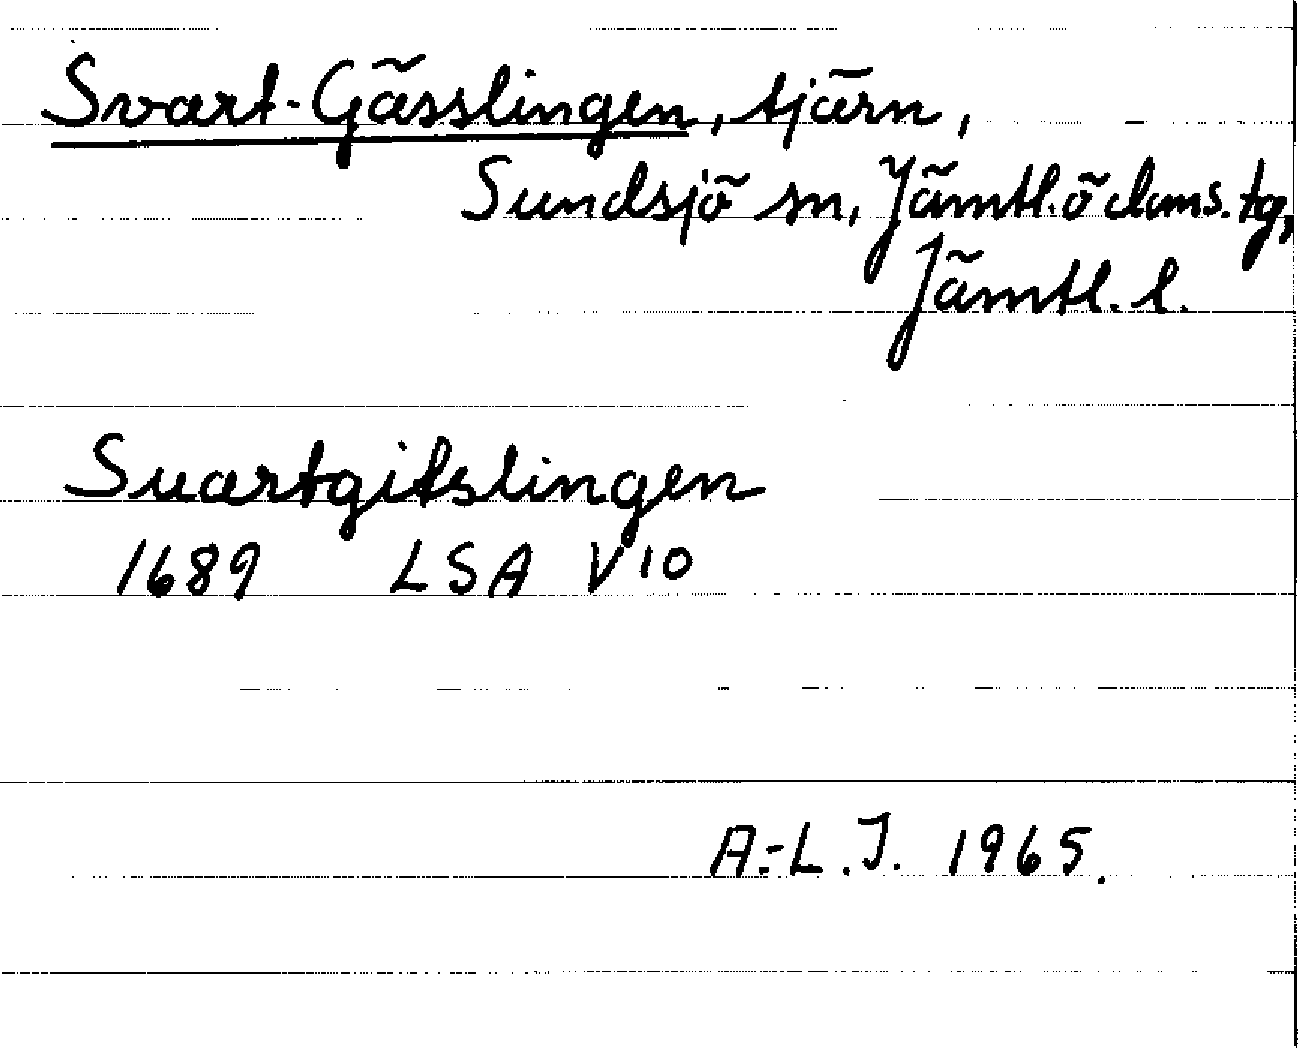 Svart-Gässlingen, tjärn,
Sundsjö sn, Jämtl. ö. doms. tg,
Jämtl. l.
Suartgitslingen
1689 LSA V10
A.-L. J. 1965.